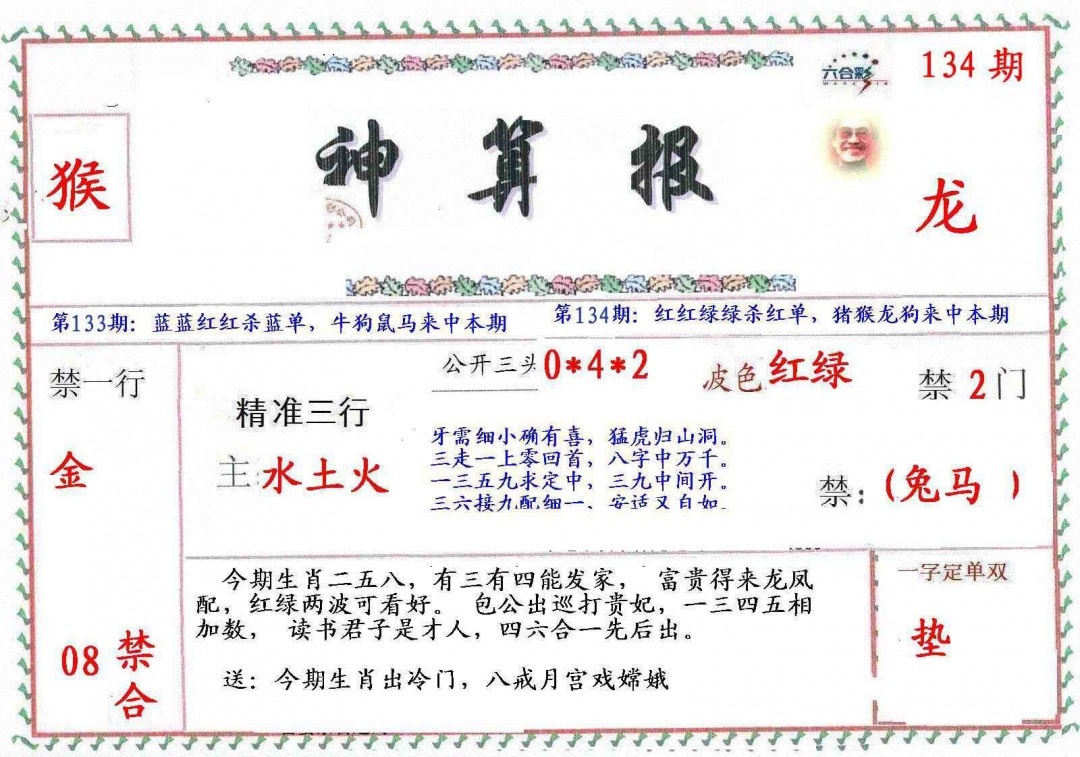 六合彩
134 期
猴
神算报
龙
第133期：蓝蓝红红杀蓝单，牛狗鼠马来中本期
第134期：红红绿绿杀红单，猪猴龙狗来中本期
禁一行
金
08 禁合
精准三行
主:水土火
公开三头 0*4*2
波色 红绿
禁 2 门
牙需细小确有喜，猛虎归山洞。
三走一上零回首，八字中万千。
一三五九求定中，三九中间开。
三六接九配细一、安适又自如.
禁：(兔马 )
今期生肖二五八，有三有四能发家， 富贵得来龙凤
配，红绿两波可看好。 包公出巡打贵妃，一三四五相
加数， 读书君子是才人，四六合一先后出。
送：今期生肖出冷门，八戒月宫戏嫦娥
一字定单双
垫